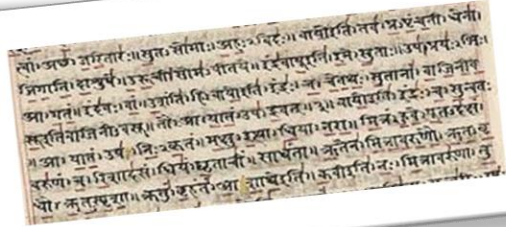 त्वां।अच्छ।जरितारः॥सुतऽसोमाः।अहःऽविदः॥वायोइति।तव।प्रऽपृंचती।धेना।
जिगाति।दाशुषे॥उरूची।सोमऽपीतये॥इंद्रवायूइति।इमे।सुताः॥उप।प्रयःऽभिः।
आ।गतं॥इंदवः।वां।उशंति।हि॥वायोइति।इंद्रः।च।चेतथः।सुतानां।वाजिनीव
सूइतिवाजिनीवसू॥तौ।आ।यातं।उप।द्रवत्॥३॥वायोइति।इंद्रः।च।सुन्वतः
॥आ।यातं।उप।निःऽकृतं।मक्षु।इत्था।धिया।नरा॥मित्रं।हुवे।पूतऽदक्षं।
वरुणं।च।रिशादसं॥धियं।घृताचीं।साधंता॥ऋतेन।मित्रावरुणौ।ऋतऽवृ
धौ।ऋतऽस्पृशा॥क्रतुं।बृहंतं।आशाथेइति॥कवीइति।नः।मित्रावरुणा।तु